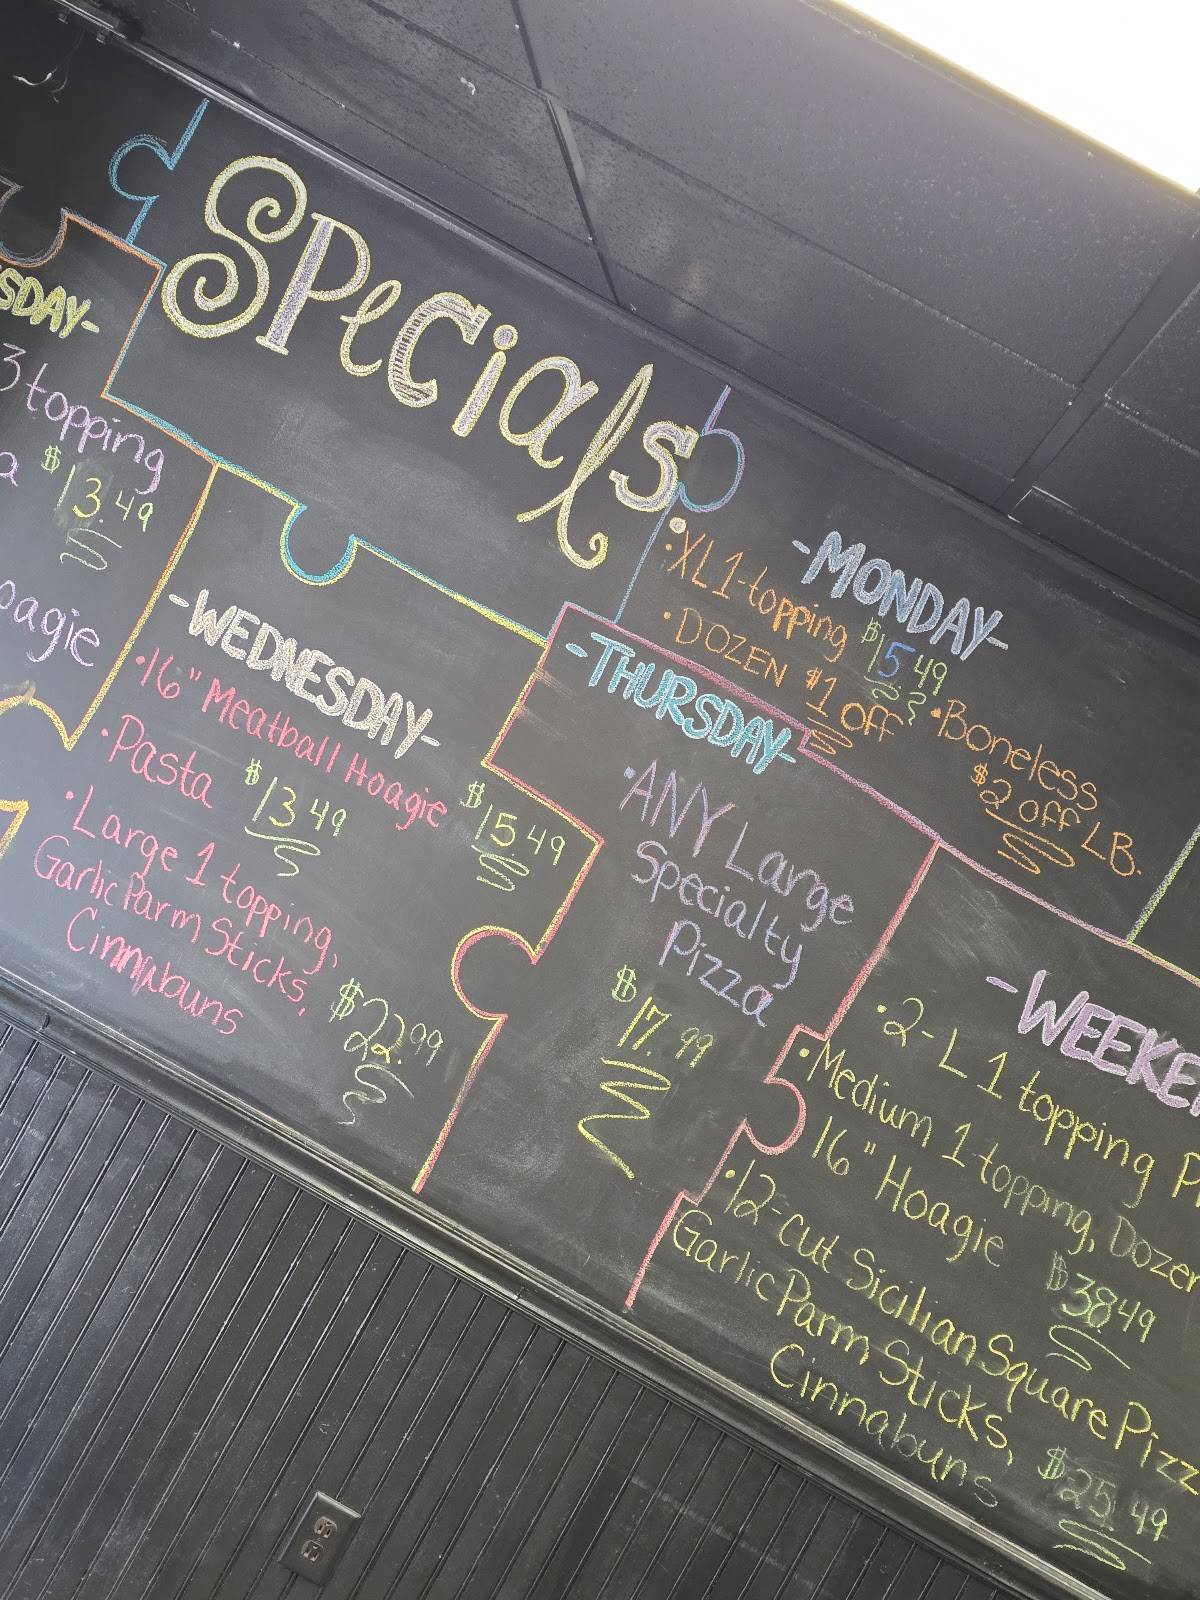 Specials
-MONDAY-
• XL 1-topping $15.49
• DOZEN $1 off
• Boneless
$2 off LB.
SDAY-
3 topping
a $13.49
oagie
-WEDNESDAY-
• 16" Meatball Hoagie $15.49
• Pasta $13.49
• Large 1 topping,
Garlic Parm Sticks,
Cinnabuns $22.99
-THURSDAY-
• ANY Large
Specialty
Pizza
$17.99
-WEEKE
• 2-L 1 topping P
• Medium 1-topping, Dozen
16" Hoagie $38.49
• 12-cut Sicilian Square Pizz
Garlic Parm Sticks,
Cinnabuns $25.49